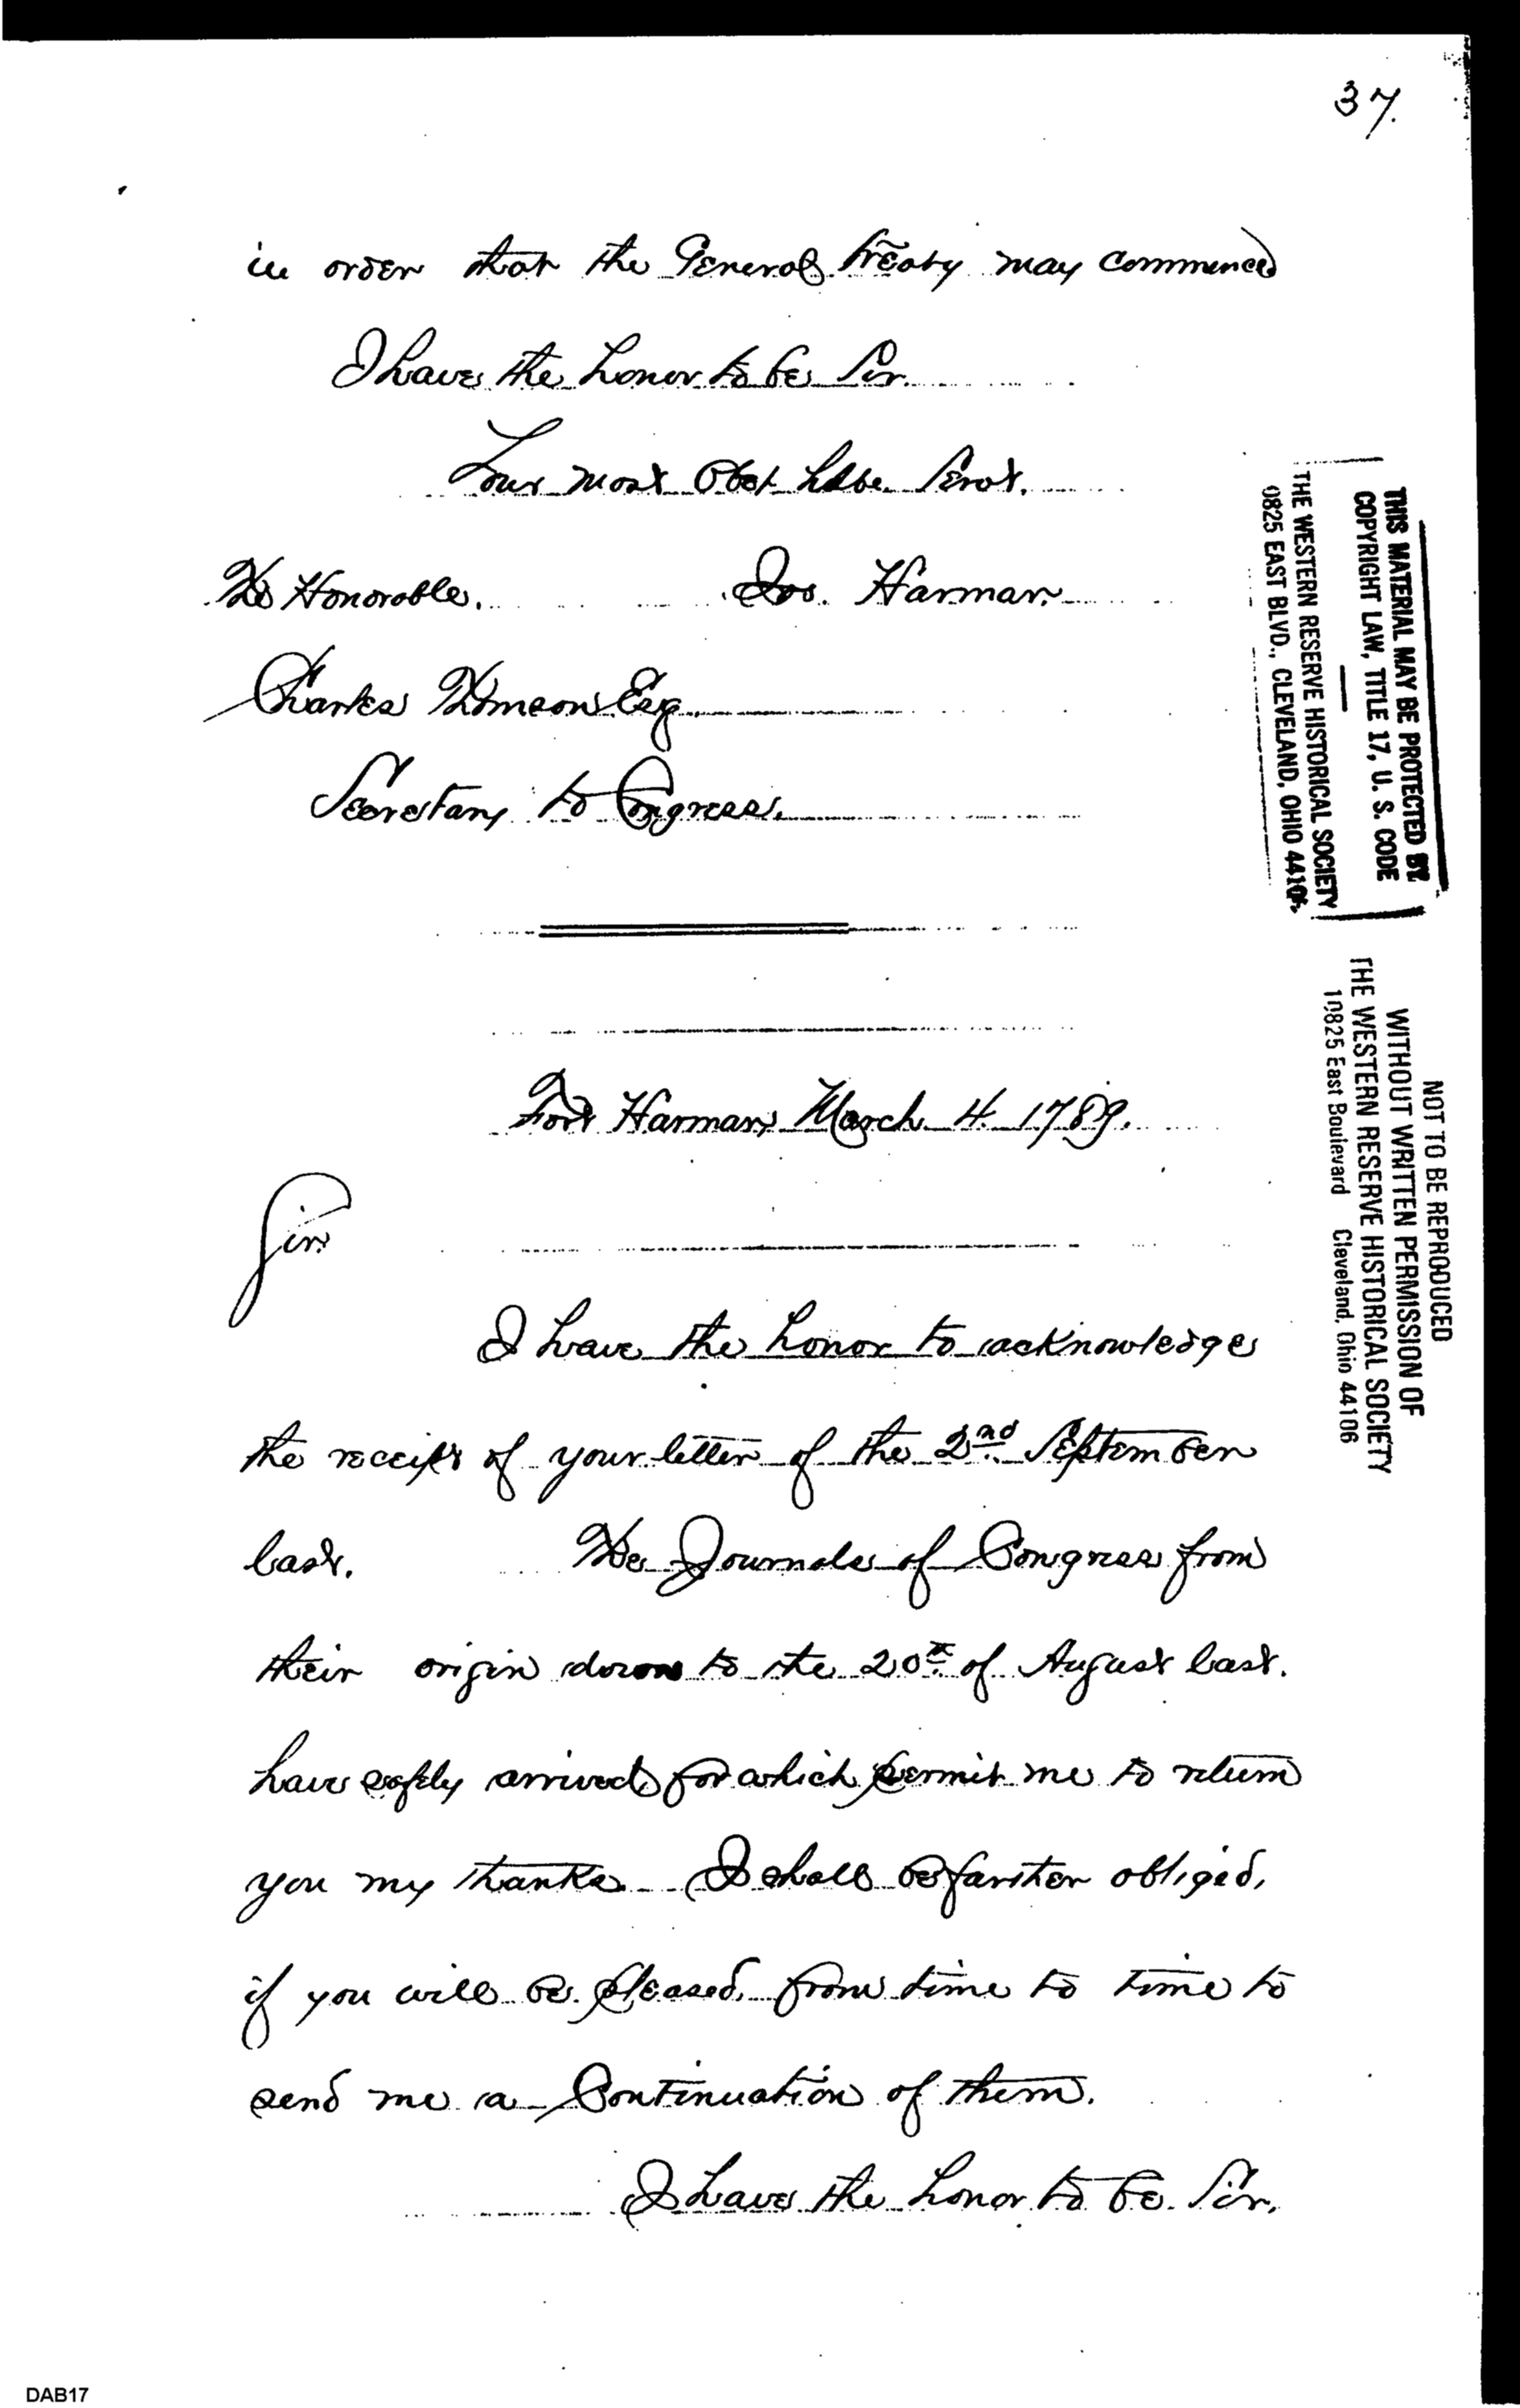 37.
in order that the General treaty may commence
I have the honor to be Sir.
Your most Obet hdbe. Servt.
The Honorable. Jos. Harmar.
Charles Thomson Esq.
Secretary to Congress.
Fort Harmar, March 4. 1789.
Sir.
I have the honor to acknowledge
the receipt of your letter of the 2nd. September
last. The Journals of Congress from
their origin down to the 20th. of August last.
have safely arrived for which permit me to return
you my thanks. I shall be farther obliged,
if you will be pleased, from time to time to
send me a Continuation of them.
I have the honor to be. Sir,
THIS MATERIAL MAY BE PROTECTED BY
COPYRIGHT LAW, TITLE 17, U. S. CODE
THE WESTERN RESERVE HISTORICAL SOCIETY
0825 EAST BLVD., CLEVELAND, OHIO 44106
NOT TO BE REPRODUCED
WITHOUT WRITTEN PERMISSION OF
THE WESTERN RESERVE HISTORICAL SOCIETY
10825 East Boulevard Cleveland, Ohio 44106
DAB17